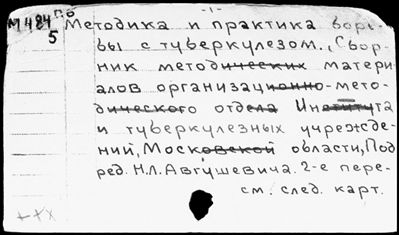 - 1 -
по
М484 Методика и практика борь-
5 бы с туберкулезом., Сбор-
ник методических матери-
алов организационно-мето-
дического отдела Института
и туберкулезных учрежде-
ний, Московской области, Под
ред. Н.Л. Авгушевича. 2-е пере-
см. след. карт.
+XX